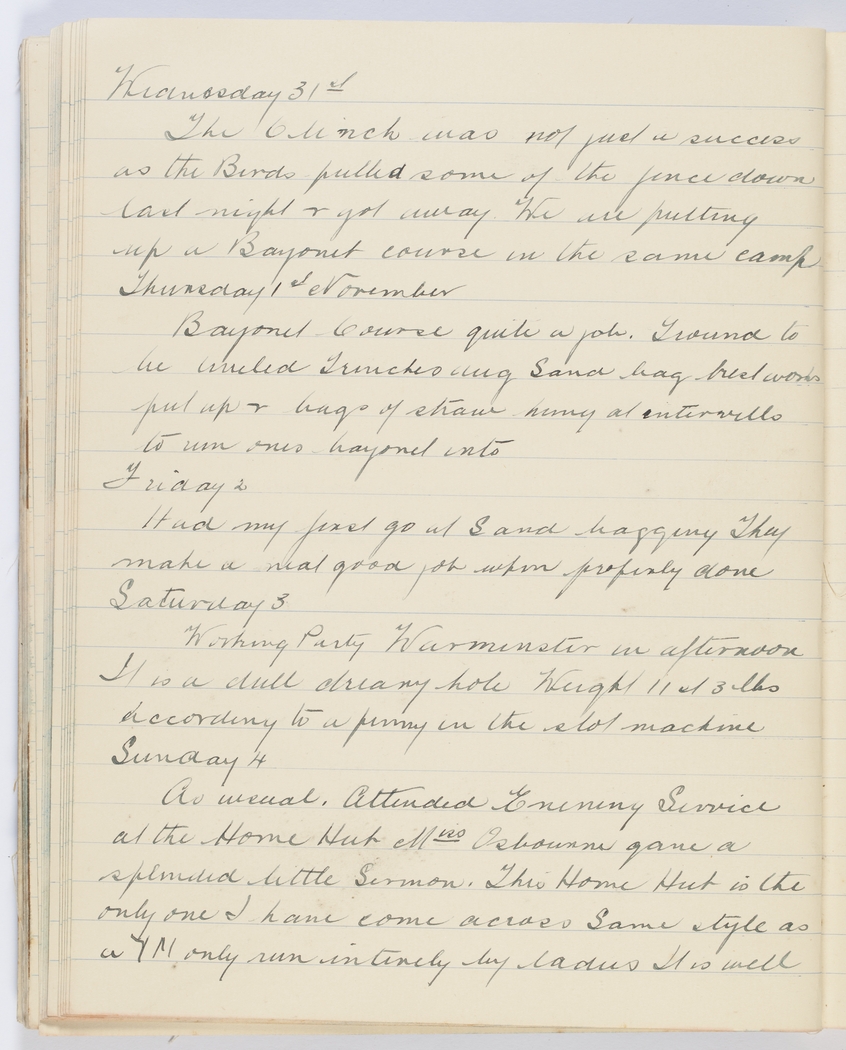 Wednesday 31st
The Clinch was not just a success
as the Birds pulled some of the fence down
last night & got away. We are putting
up a Bayonet course in the same camp
Thursday 1st November
Bayonet Course quite a job. Ground to
be leveled Trenches dug Sand bag brestworks
put up & bags of straw hung at intervills
to run ones bayonet into
Friday 2
Had my first go at Sand bagging They
make a real good job when properly done
Saturday 3
Working Party Warminster in afternoon
It is a dull dreary hole Weight 11 st 3 lbs
according to a penny in the slot machine
Sunday 4
As usual. Attended Evening Service
at the Home Hut Miss Osbourne gave a
splended little Sermon. This Home Hut is the
only one I have come across Same style as
a YM only run intirely by ladies It is well